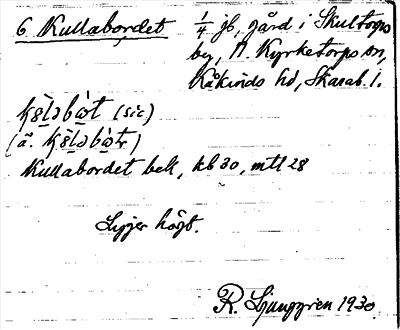 6 Kullabordet
1/4 gb, gård i Skultorps
by, N. Kyrketorps sn,
Kåkinds hd, Skarab. l.
(sic)
(ä.
Kullabordet belt, kb 30, mtl 28
Ligger högt.
R. Ljunggren 1930.